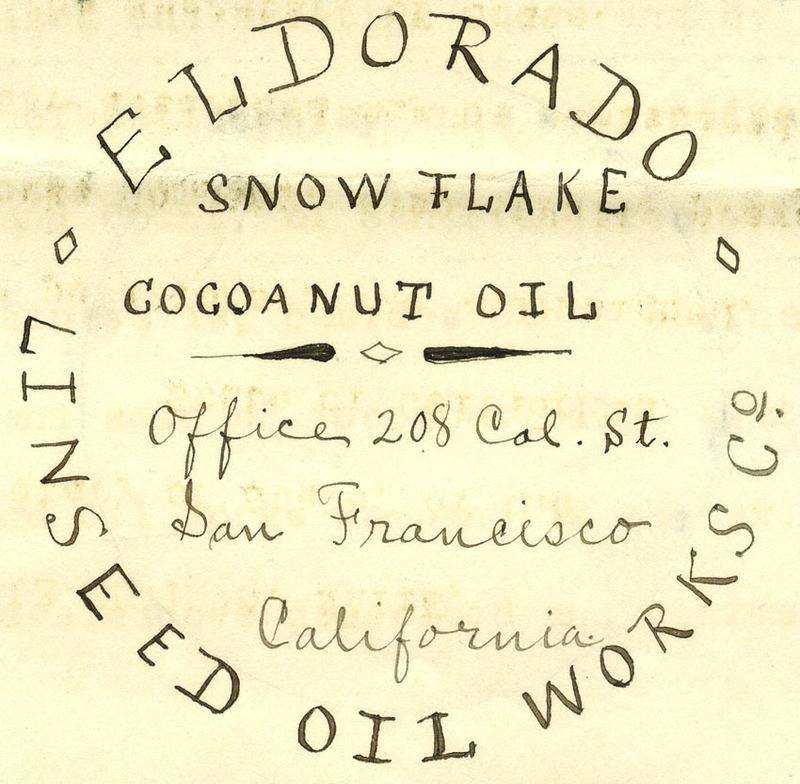 ELDORADO
SNOW FLAKE
COCOANUT OIL
Office 208 Cal. St.
San Francisco
California
LINSEED OIL WORKS Co.